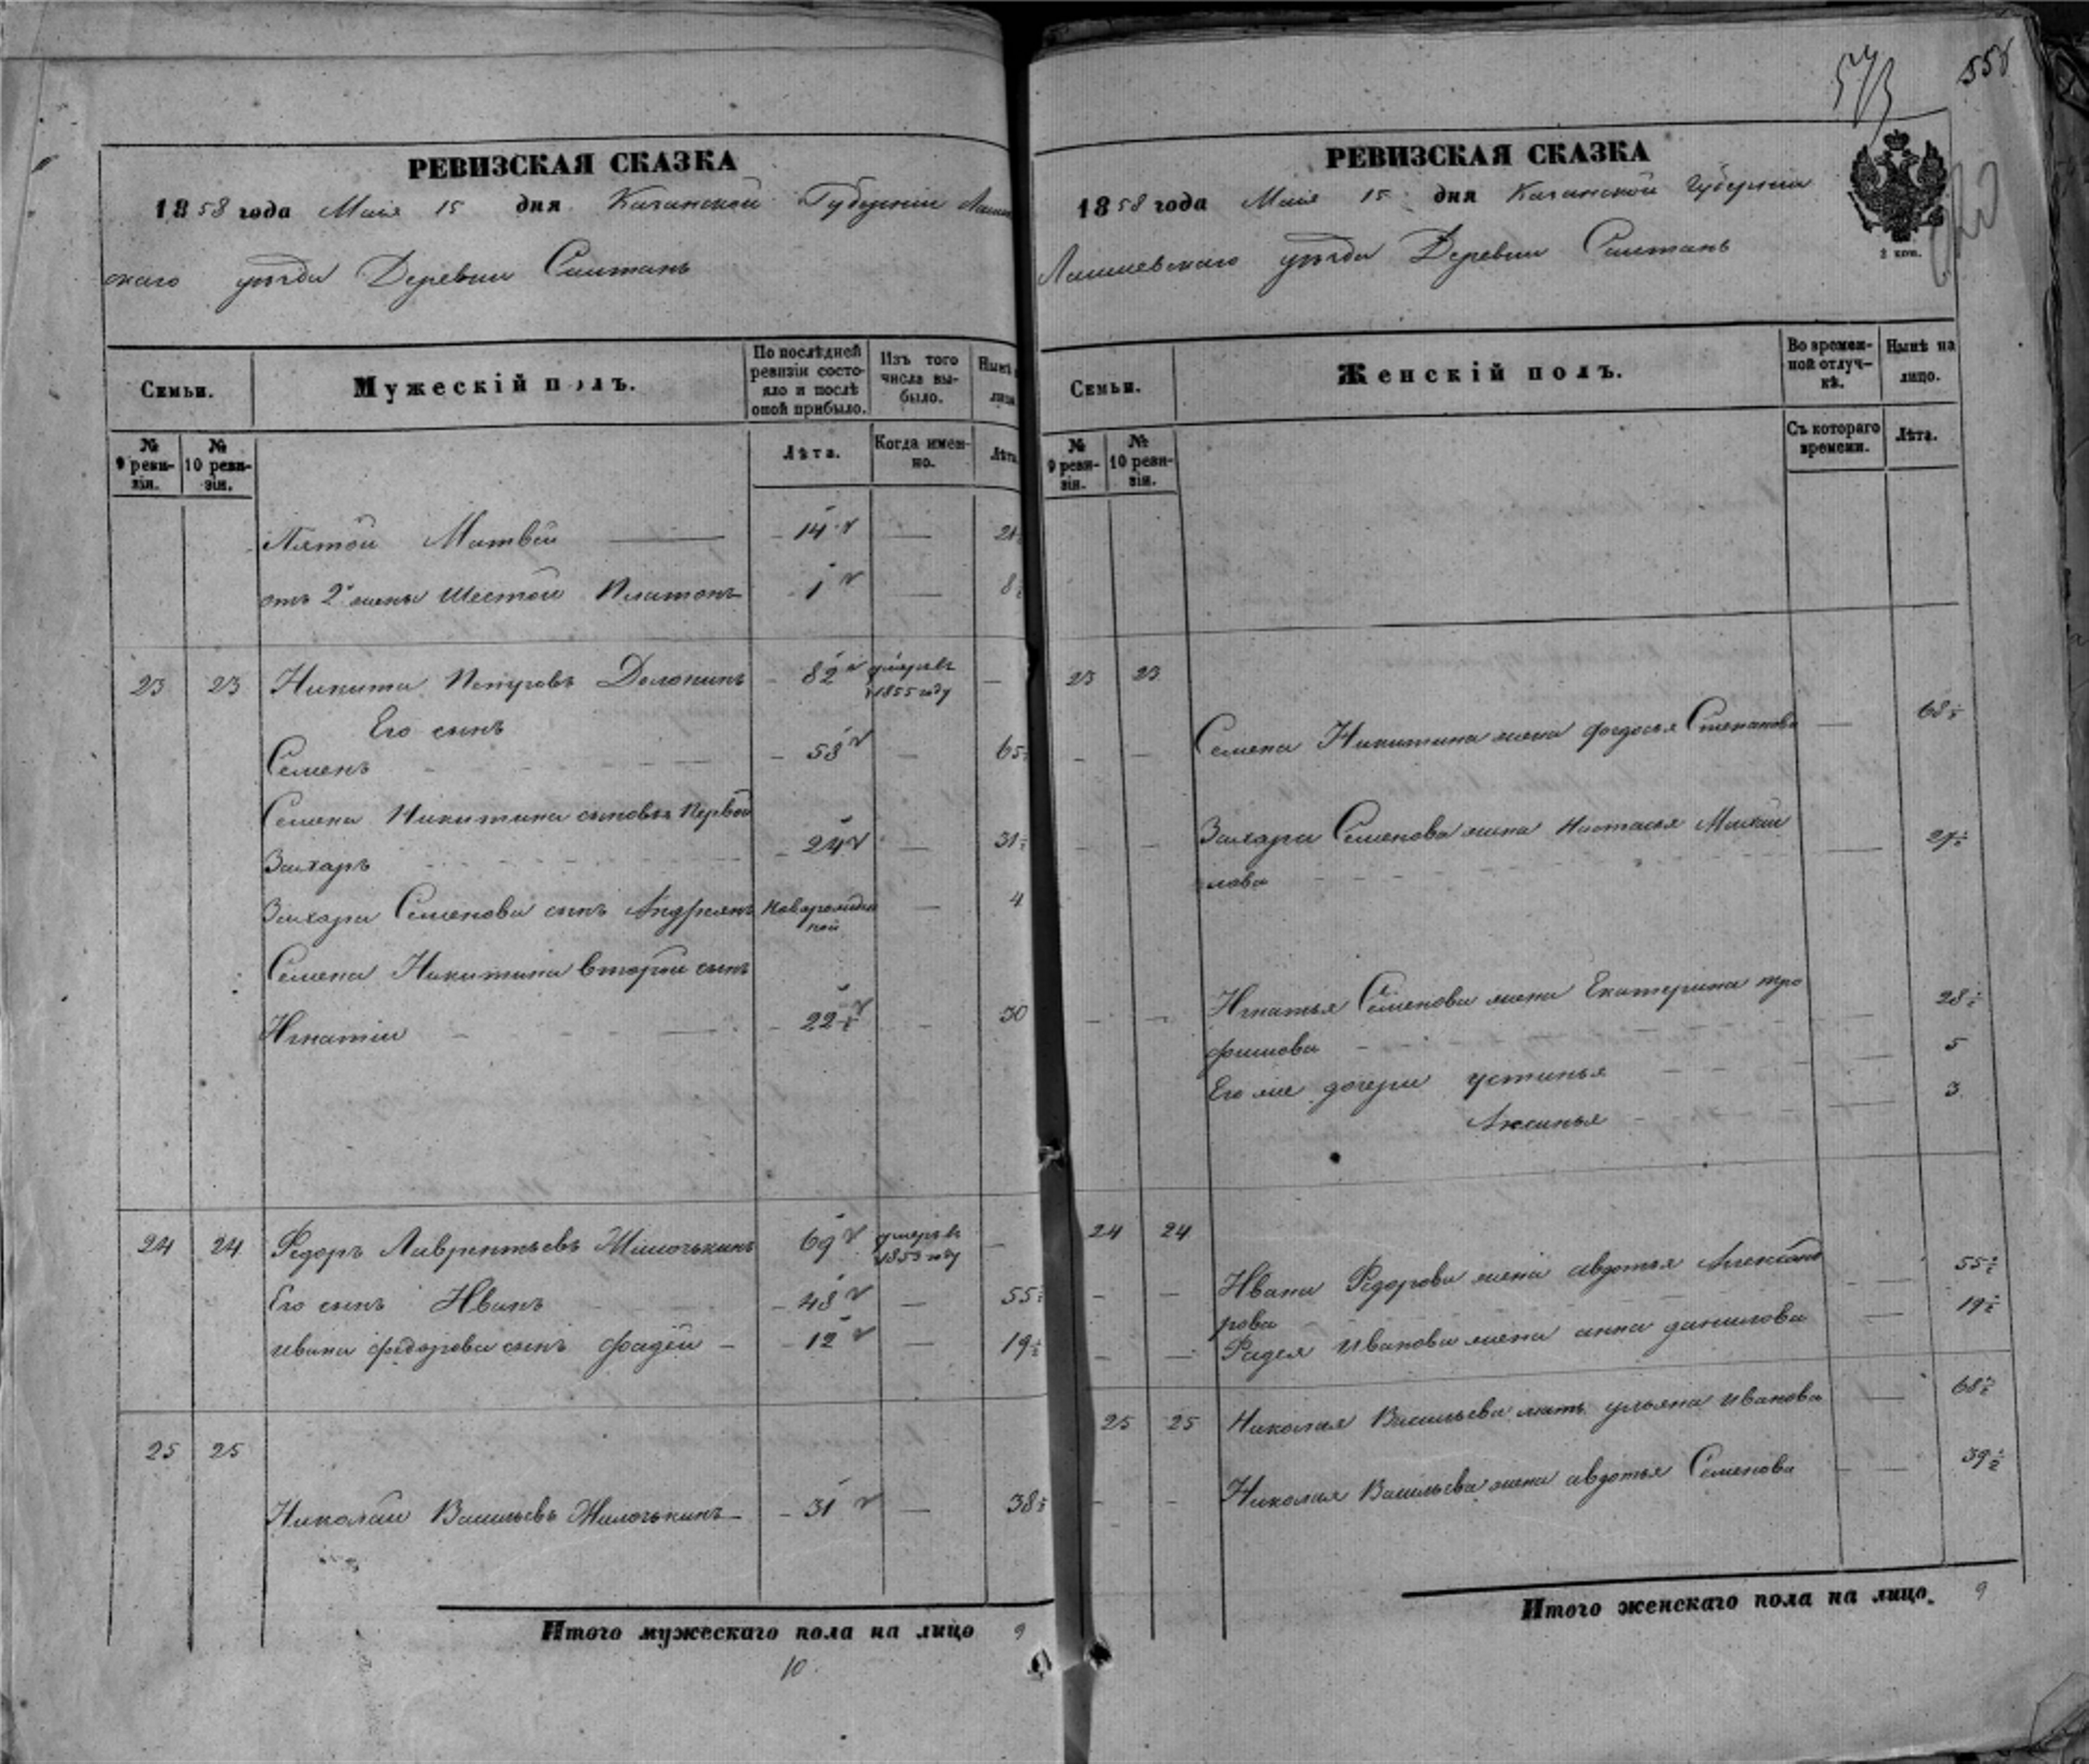 РЕВИЗСКАЯ СКАЗКА
1858 года Маія 15 дня Казанской Губерніи Лаише
скаго уезда Деревни Саитанъ
Семьи.
Мужескій полъ.
По послѣдней ревизіи состояло и послѣ оной прибыло.
Изъ того числа выбыло.
Нынѣ лицо
№ 9 ревизіи.
№ 10 ревизіи.
Лѣта.
Когда именно.
Лѣта.
Пятой Матвѣй 14 — 21
отъ 2й жены Шестой Платонъ 1 — 8½
23 23 Никита Петровъ 82 умеръ въ 1855 году —
Его сынъ
Семенъ 58 — 65
Семена Никитина сыновья Первой
Захаръ 24 — 31½
Захара Семенова сынъ Андреянъ Новорожденной — 4
Семена Никитина второй сынъ
Игнатіи 22½ — 30
24 24 Федоръ Лаврентьевъ 69 умеръ въ 1853 году —
Его сынъ Иванъ 48 — 55½
ивана федорова сынъ фадеи 12 — 19½
25 25
Николаи Васильевъ 31 — 38½
Итого мужескаго пола на лицо 9
10
558
РЕВИЗСКАЯ СКАЗКА
1858 года Маія 15 дня Казанской Губерніи
2 коп.
Лаишевскаго уезда Деревни Саитанъ
Семьи.
Женскій полъ.
Во временной отлучкѣ.
Нынѣ на лицо.
№ 9 ревизіи.
№ 10 ревизіи.
Съ котораго времени.
Лѣта.
23 23
Семена Никитина жена федосья Степанова — 68½
Захара Семенова жена Настасья Михаи
лова — 27½
Игнатья Семенова жена Екатерина тро
фимова 28½
Его же дочери устинья — 5
Аксинья — 3
24 24
Ивана Федорова жена авдотья Александ
рова — 55½
Фадея Иванова жена анна данилова — 19½
25 25 Николая Васильева мать ульяна иванова — 68½
Николая Васильева жена авдотья Семенова — 39½
Итого женскаго пола на лицо. 9